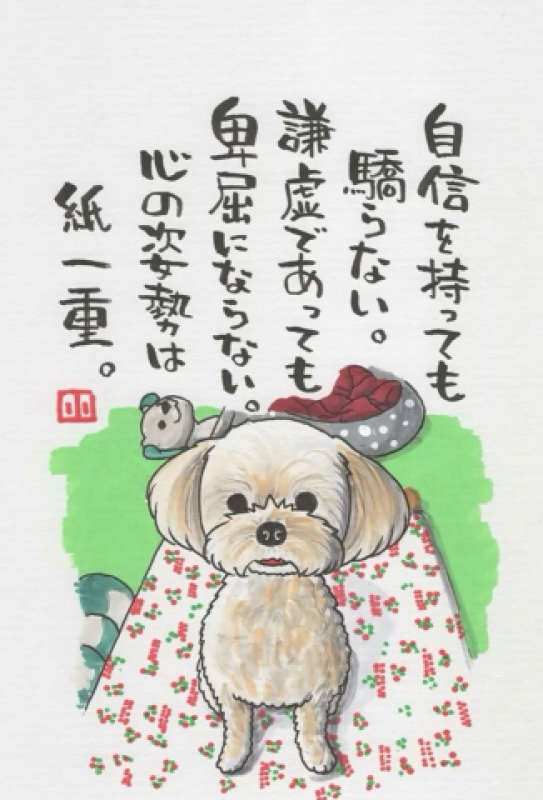 自信を持っても
驕らない。
謙虚であっても
卑屈にならない。
心の姿勢は
紙一重。